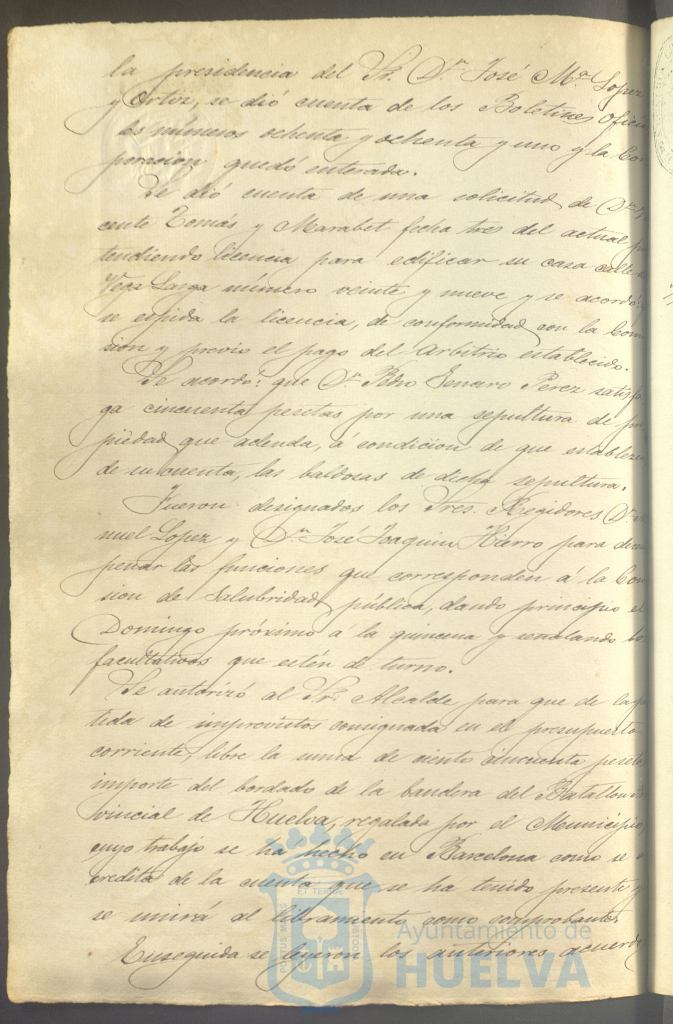 la presidencia del Sr. Dn José Ma. Lopez
y Ortiz, se dió cuenta de los Boletines Oficia
les números ochenta y ochenta y uno y la Cor
poracion quedó enterada.
Se dió cuenta de una solicitud de Dn
cente Tomás y Marabet fecha tres del actual pre
tendiendo licencia para edificar su casa calle
Vega Larga número veinte y nueve y se acordó:
se espida la licencia, de conformidad con la Comi
sion y previo el pago del arbitrio establecido.
Se acordó: que Dn Pedro Genaro Perez satisfa
ga cincuenta pesetas por una sepultura de pro
piedad que adeuda, á condicion de que establezca
de su cuenta, las baldosas de dicha sepultura.
Fueron designados los Sres. Regidores Dn
nuel Lopez y Dn José Joaquin Hierro para desem
peñar las funciones que corresponden á la Comi
sion de Salubridad pública, dando principio el
Domingo próximo á la quincena y señalando los
facultativos que estén de turno.
Se autorizó al Sr. Alcalde para que de la par
tida de imprevistos consignada en el presupuesto
corriente, libre la suma de ciento cincuenta pesetas
importe del bordado de la bandera del Batallon
vincial de Huelva, regalada por el Municipio
cuyo trabajo se ha hecho en Barcelona como se a
credita de la cuenta que se ha tenido presente y
se unirá al libramiento como comprobante.
Enseguida se leyeron los anteriores acuerdos
PORTUS MARIS ET TERRAE CUSTODIA
Ayuntamiento de
HUELVA